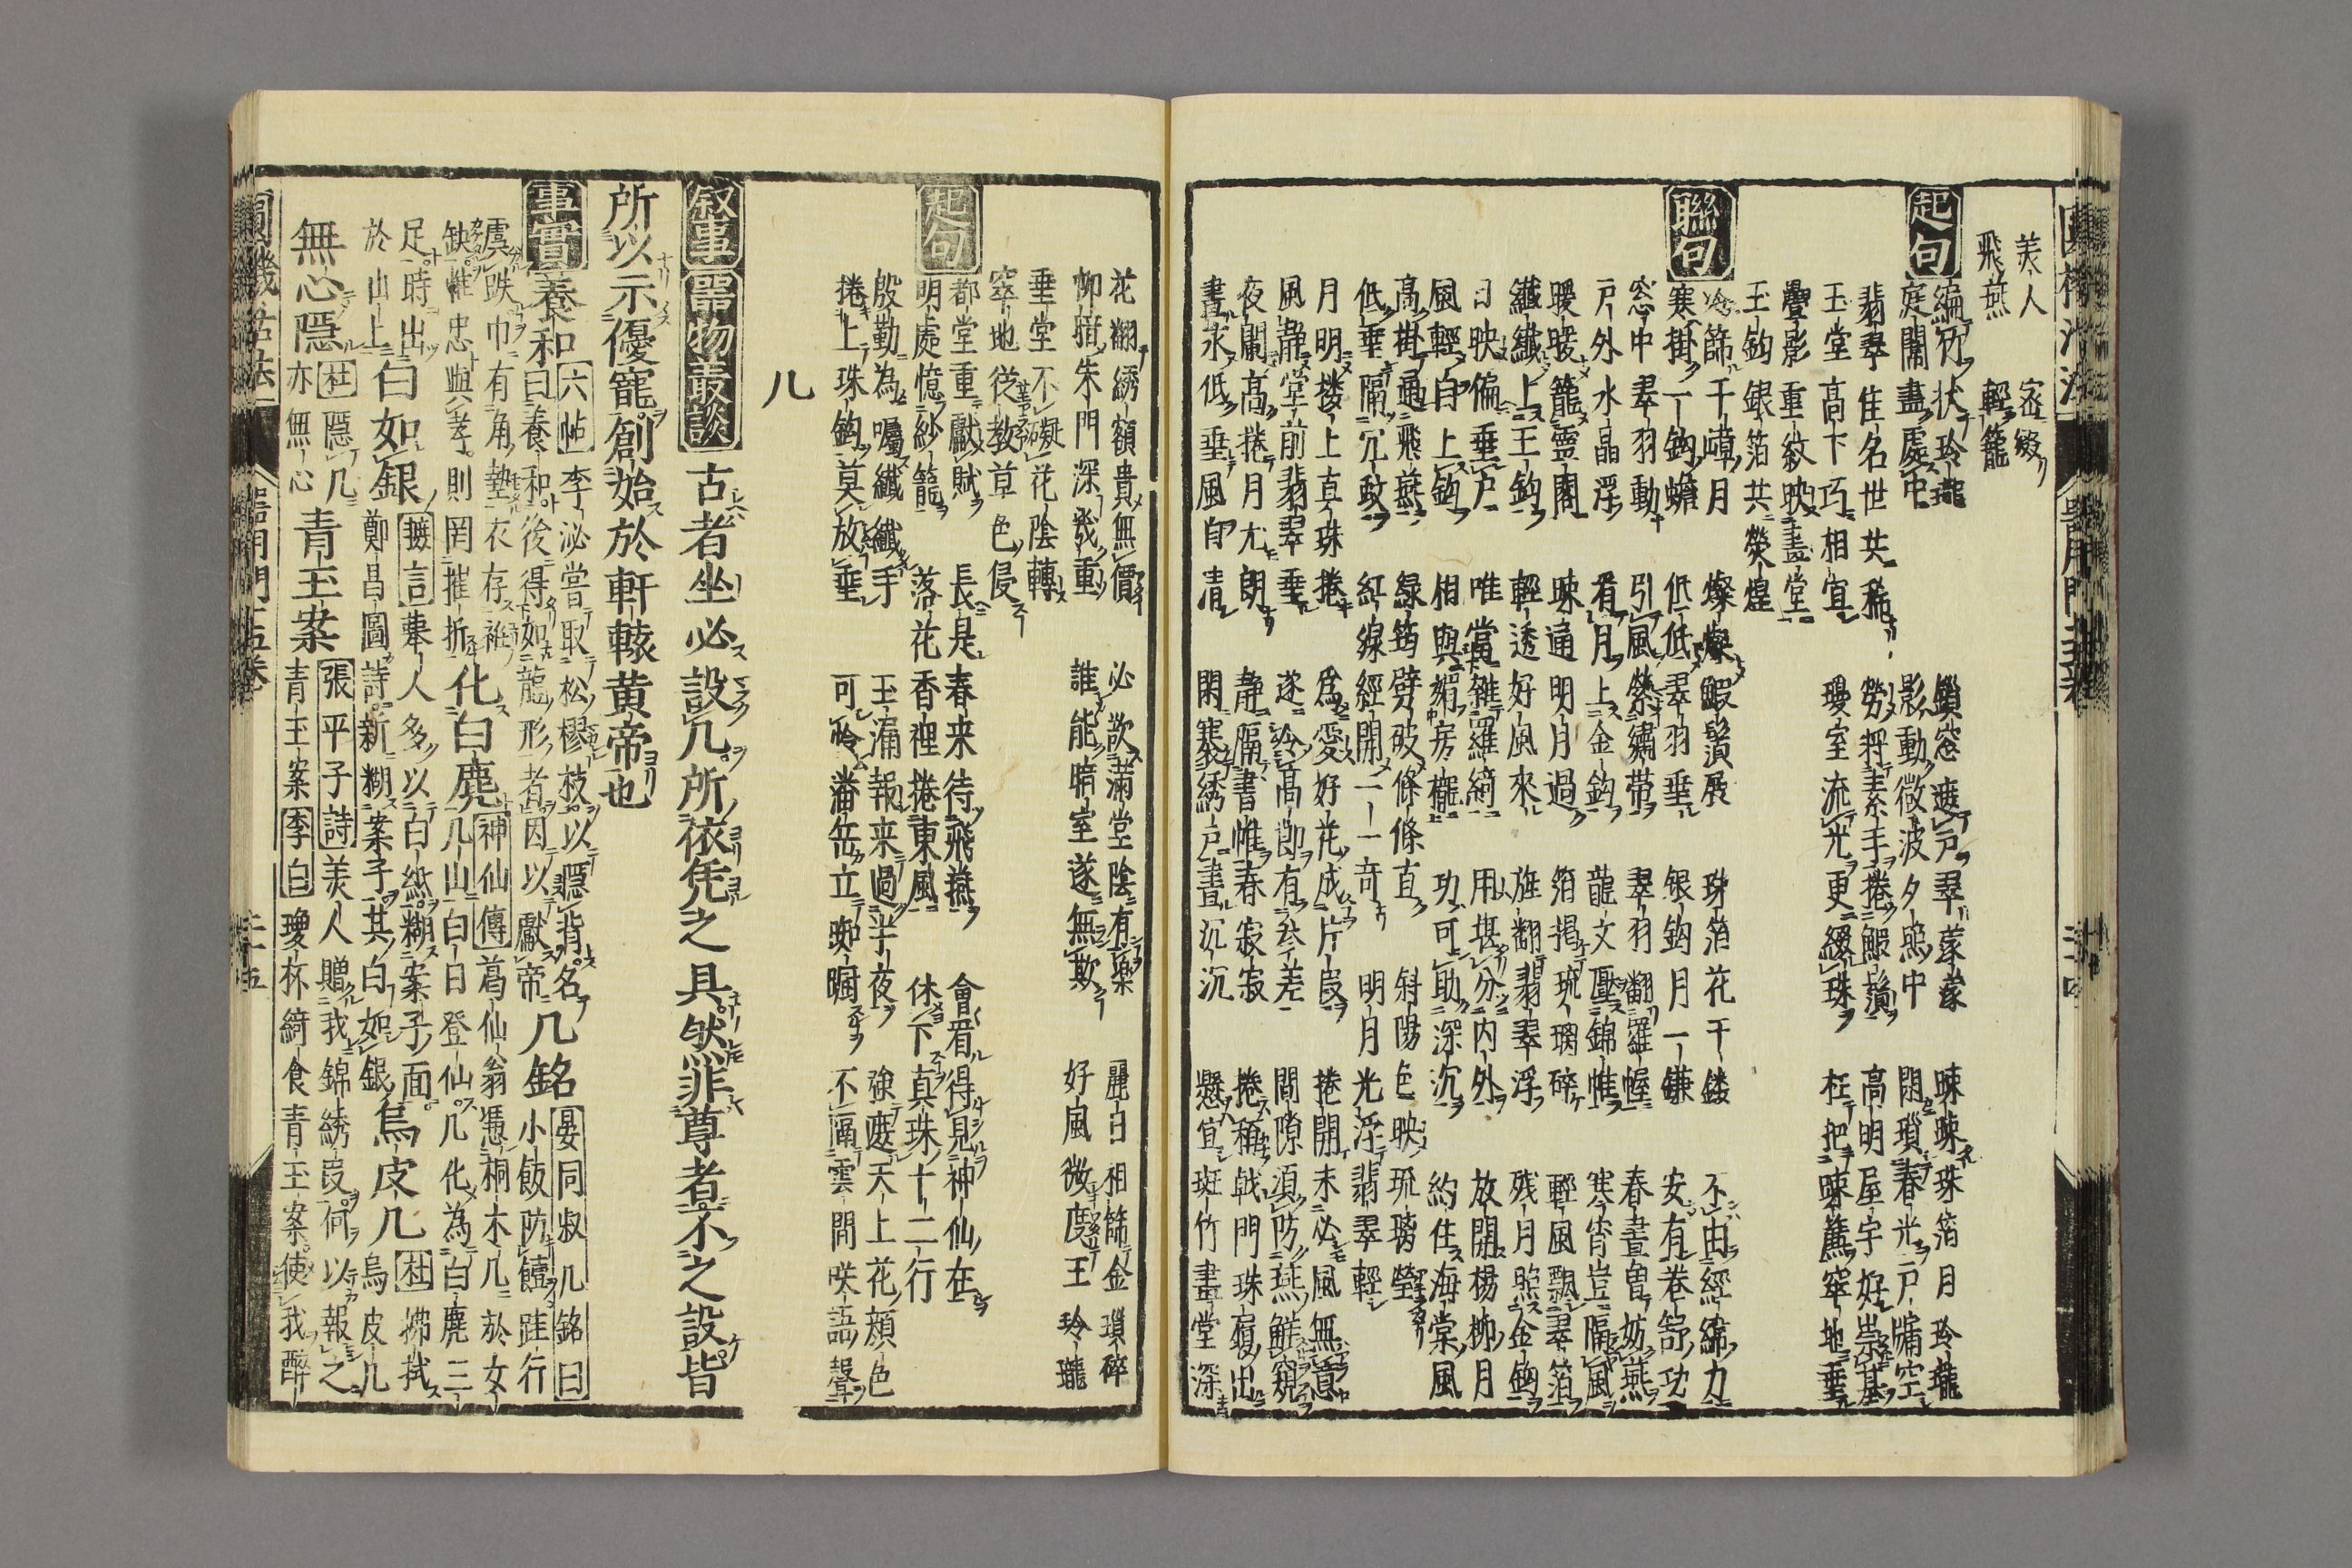 圓機活法 器用門五卷 二十四
美人 密綴
飛燕 輕籠
起句 編竹状玲瓏 鎖窓遮戸翠蒙蒙 疎疎珠箔月玲瓏
庭闈盡處中 影動微波夕照中 閉鎖春光戸牖空
翡翠佳名世共稀 勞将素手捲鰕鬚 高明屋宇好崇基
玉堂高下巧相宜 瓊室流光更綴珠 在把疎簾窣地垂
疊影重紋映畫堂
玉鈎銀箔共熒煌
聯句 冷篩千嶂月 燦爛鰕鬚展 珠箔花千鏤 不由經緯力
寒掛一鈎蟾 低低翠羽垂 銀鈎月一鎌 安有卷舒功
窓中翠羽動 引風縈繡带 翠羽翻羅幄 春晝曽妨燕
戸外水晶浮 看月上金鈎 龍文壓錦帷 寒宵豈隔風
曖曖籠靈閣 疎通明月過 箔揭琉璃碎 輕風飄翠箔
纖纖上玉鈎 輕透好風來 旌翻翡翠浮 残月照金鈎
日映偏垂戸 唯當雜羅綺 用堪分内外 放開楊柳月
風輕自上鈎 相與媚房櫳 功可助深沉 約住海棠風
高掛遇飛燕 緑筠劈破條條直 斜陽色映琉璃瑩
低垂隔沉蚊 紅線經開一一竒 明月光浮翡翠輕
月明楼上真珠捲 爲愛好花成片段 捲開未必風無意
風靜堂前翡翠垂 遂令高節有叅差 間隙須防燕鮮窺
夜闌高捲月尤朗 靜隔書帷春寂寂 捲稱戟門珠履出
晝永低垂風自清 閑褰綉戸晝沉沉 懸宜斑竹畫堂深
花翻綉額貴無價 必歆滿堂陰有樂 麗日相篩金瑣碎
柳暗朱門深幾重 誰能暗室遂無欺 好風微度玉玲瓏
垂堂不礙花陰轉
窣地從教草色侵
起句 都堂重獻賦 長是春来待飛燕 會看得見神仙在
明處憶紗籠 落花香裡捲東風 休下真珠十二行
殷勤為囑纖纖手 玉漏報来過半夜 強遮天上花顔色
捲上珠鈎莫放垂 可怜潘岳立踟躕 不隔雲間咲語聲
几
叙事 器物叢談 古者坐必設几所依凭之具然非尊者不之設皆
所以示優寵創始於軒轅黄帝也
事實 養和 六帖 李泌嘗取松樛枝以隱背名
曰養和後得如龍形者因以獻帝 几銘 晏同叔几銘曰
小飯防饐跬行
虞跌巾有角墊衣存袵
缺惟忠與孝則罔摧折 化白麂 神仙傳 葛仙翁憑桐木几於女
几山白日登仙几化為白麂三
足時出
於山上 白如銀 摭言 蓽人多以白紙糊案子面
鄭昌圖詩新糊案子其白如銀 烏皮几 杜 拂拭
烏皮几
無心隠 杜 隠几
亦無心 青玉案 張平子詩 美人贈我錦綉段何以報之
青玉案 李白 瓊杯綺食青玉案使我醉
圓機活法 器用門五卷 二十五